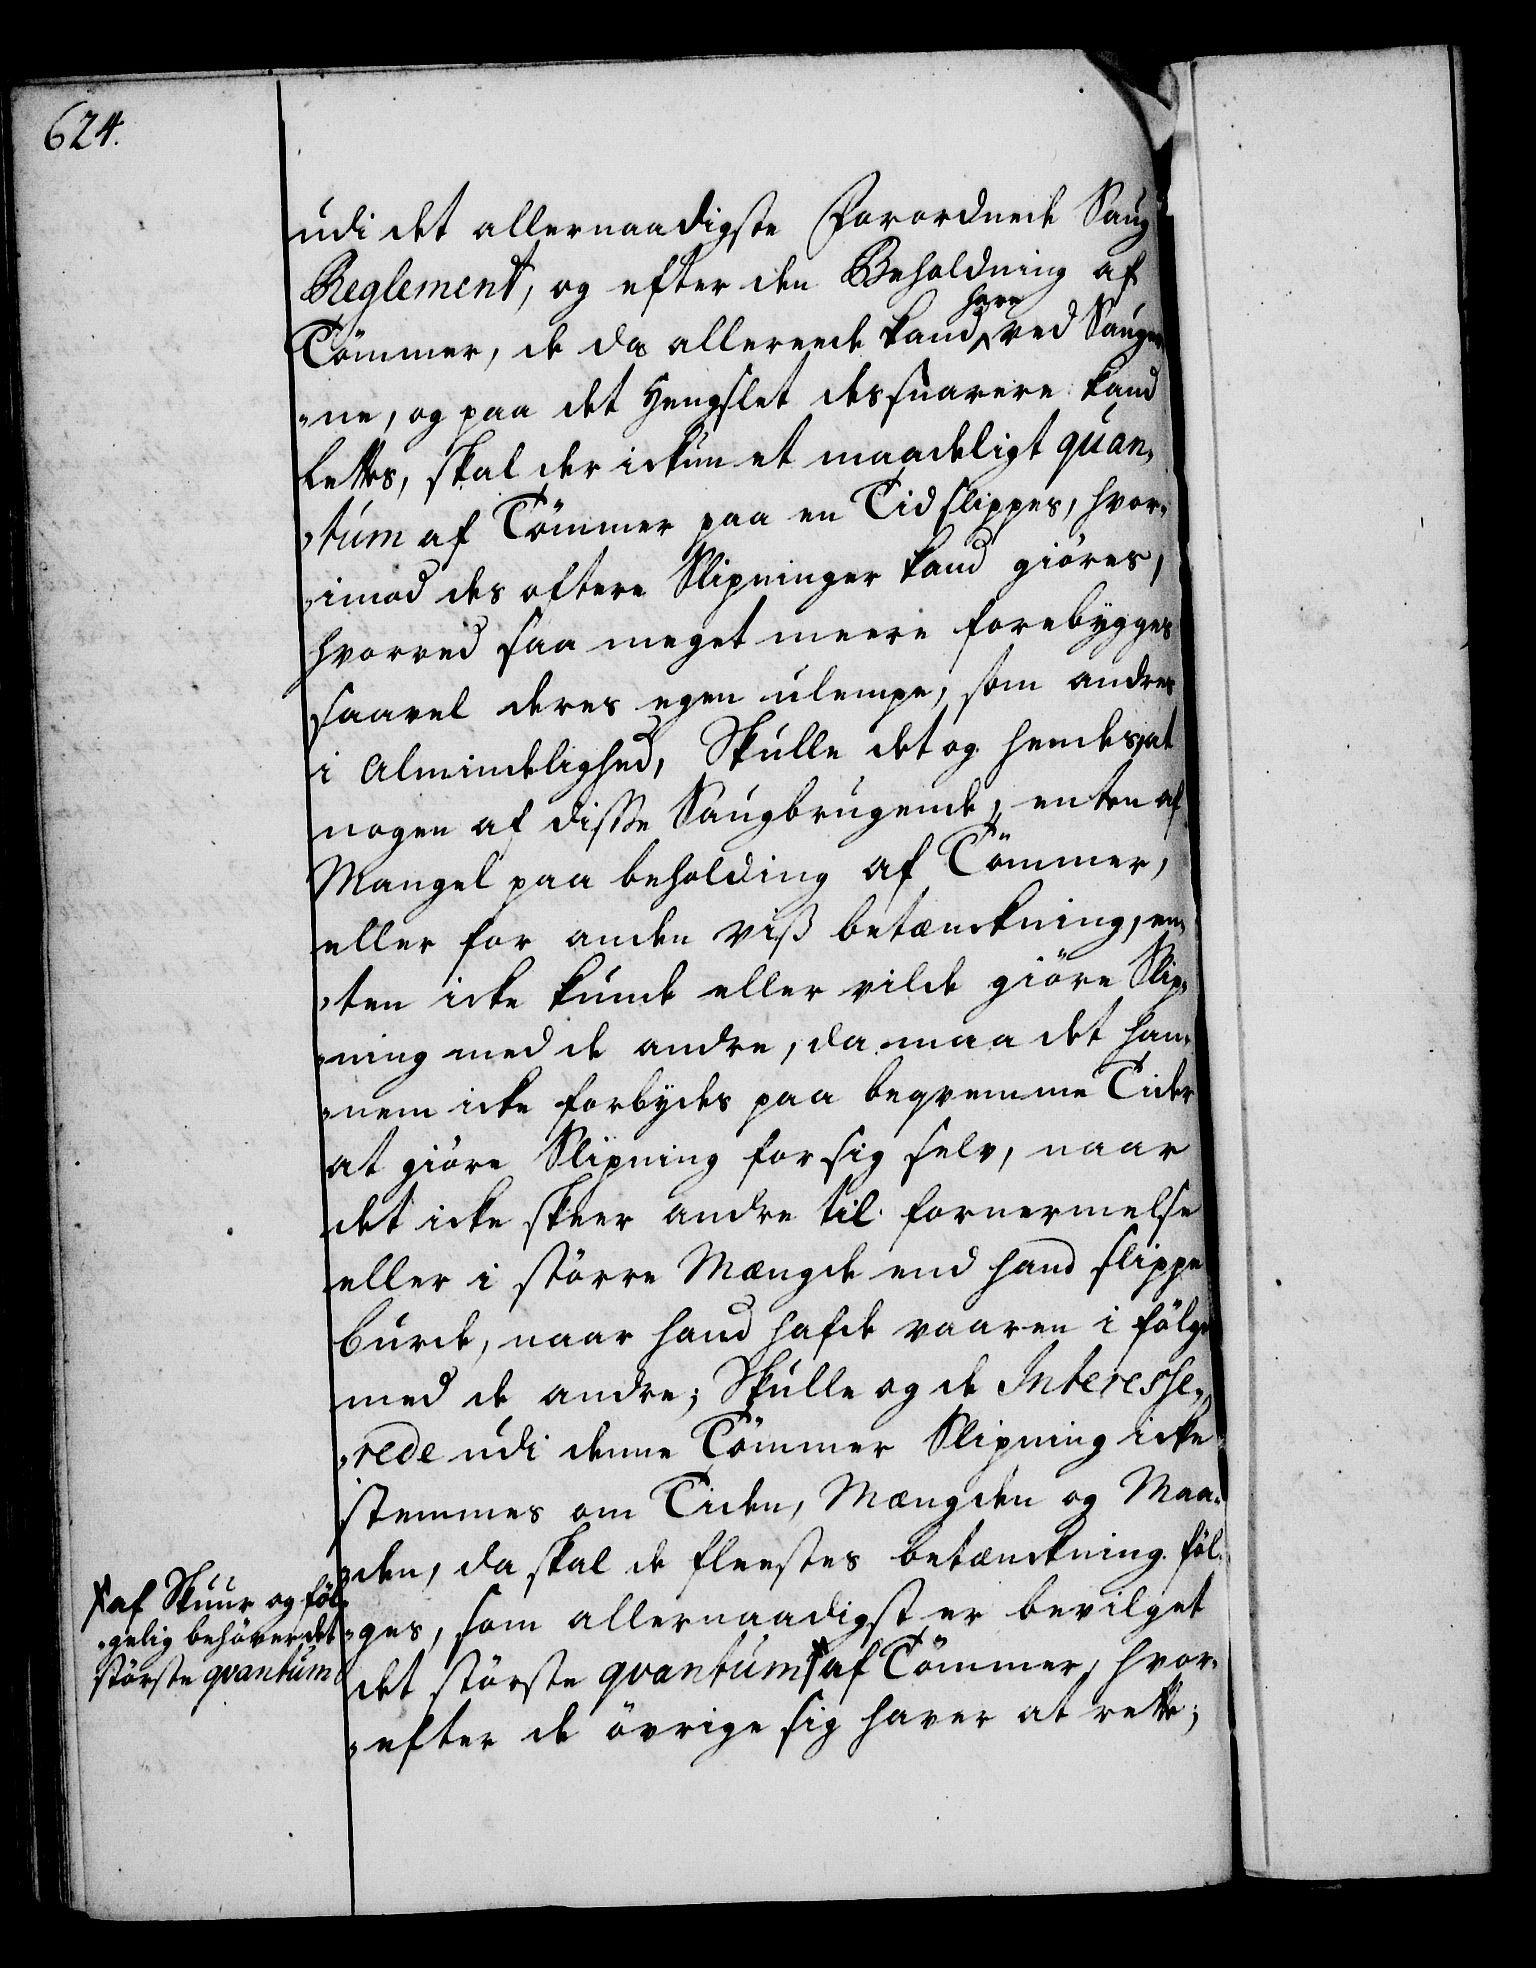 624.
udi det allernaadigste Forordnede Saug
Reglement, og efter den Beholdning af
have
Tömmer, de da allereede kand ved Sauge
-ne, og paa det Hengslet des snarere kand
lettes, skal der ickun et maadeligt quan-
-tum af Tömmer paa en Tid slippes, hvor-
-imod des oftere Slipninger kand giöres,
hvorved saa meget meere forebygges
saavel deres egen ulempe, som andres
i Almindelighed, Skulle det og hendes, at
nogen af disse Saugbrugende, enten af
Mangel paa beholding af Tömmer,
eller for anden viß betænckning, en-
-ten icke kunde eller vilde giöre Slip-
-ning med de andre, da maa det han-
-nem icke forbydes paa beqvemme Tider
at giöre Slipning for sig selv, naar
det icke skeer andre til fornermelse
eller i större Mængde end hand slippe
burde, naar hand hafde vaaren i fölge
med de andre; Skulle og de Interesse-
-rede udi denne Tömmer Slipning icke
stemmes om Tiden, Mængden og Maa-
-den, da skal de fleestes betænckning föl-
-ges, som allernaadigst er bevilget
det störste qvantum * af Tömmer, hvor-
-efter de övrige sig haver at rette;
* af Skuur og föl-
-gelig behöver det
störste qvantum